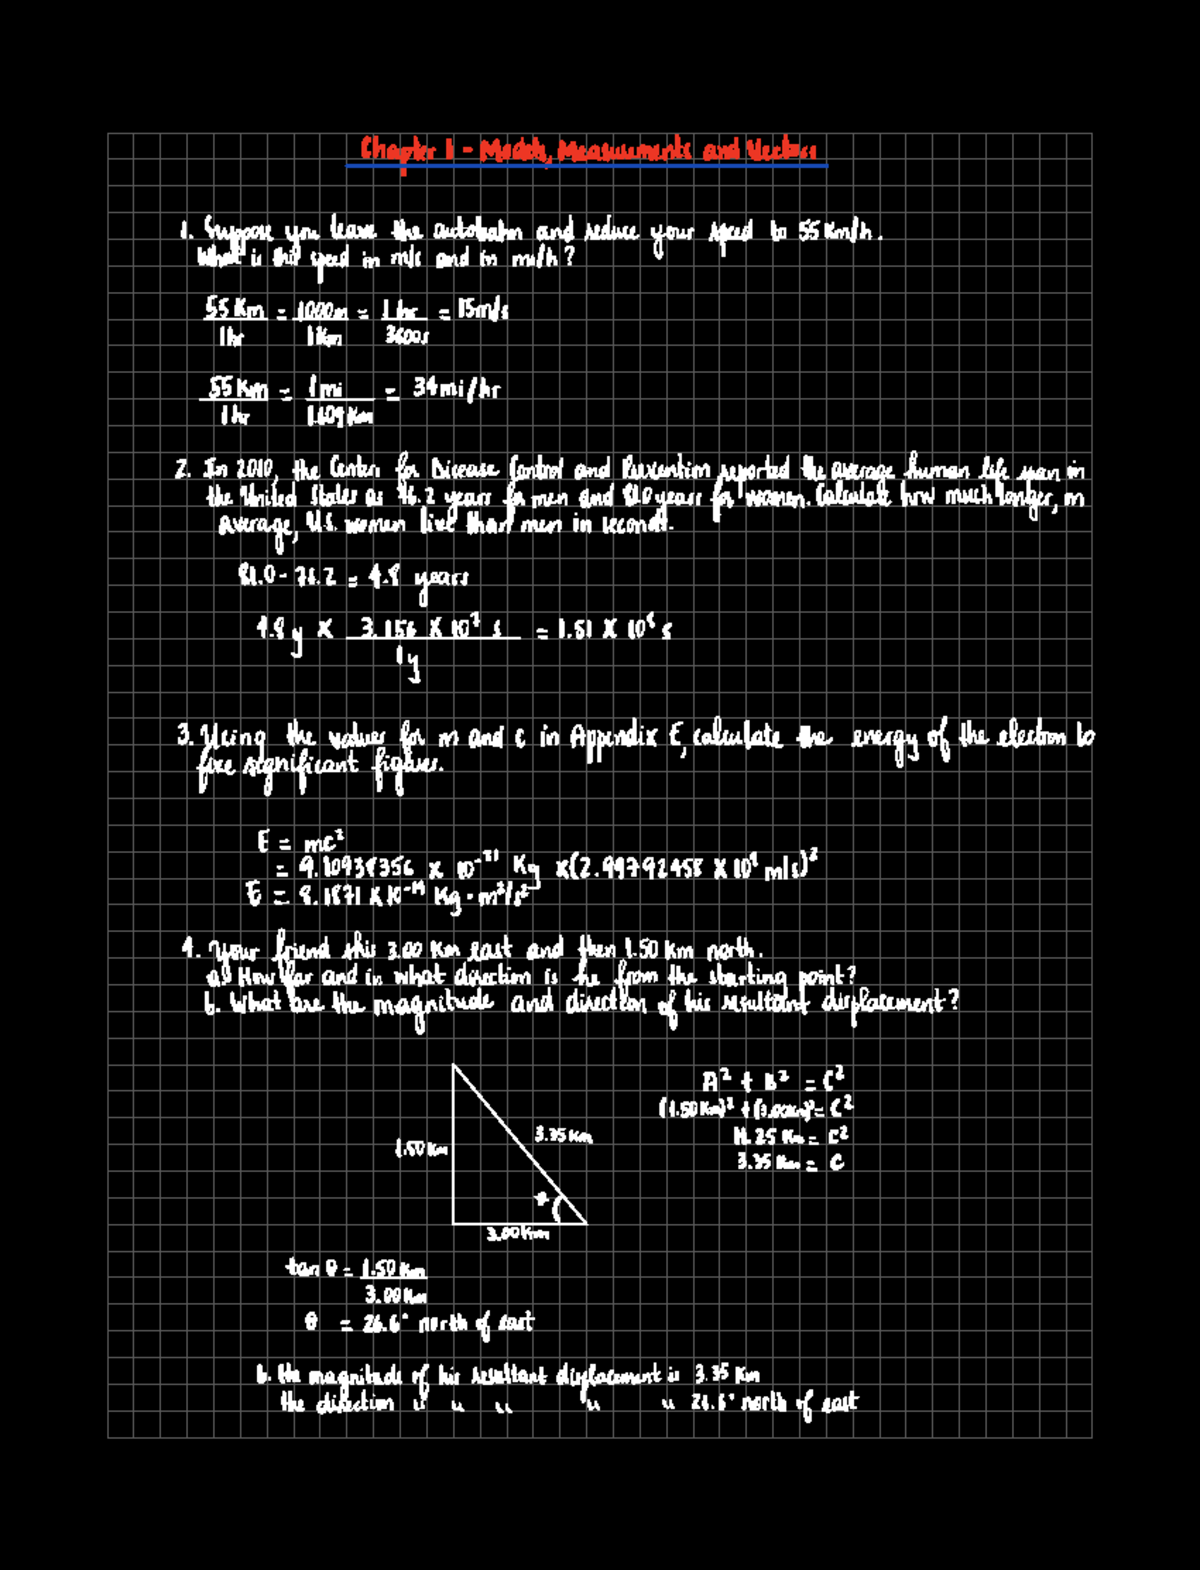 Chapter 1 - Models, Measurements and Vectors
1. Suppose you leave the autobahn and reduce your speed to 55 Km/h.
What is this speed in m/s and in mi/h?
55 Km = 1000m = 1 hr = 15m/s
1hr 1Km 3600s
55 Km = 1 mi = 34mi/hr
1 hr 1.609 Km
2. In 2010, the Centers for Disease Control and Prevention reported the average human life span in
the United States as 76.2 years for men and 81.0 years for women. Calculate how much longer, on
average, U.S. women live than men in seconds.
81.0 - 76.2 = 4.8 years
4.8 y X 3.156 X 10⁷ s = 1.51 X 10⁸ s
1y
3. Using the values for m and c in Appendix E, calculate the energy of the electron to
five significant figures.
E = mc²
= 9.10938356 x 10⁻³¹ Kg x(2.99792458 X 10⁸ m/s)²
E = 8.1871 X 10⁻¹⁴ Kg · m²/s²
4. Your friend this 3.00 Km east and then 1.50 km north.
a. How far and in what direction is he from the starting point?
b. What are the magnitude and direction of his resultant displacement?
A² + B² = C²
(1.50 Km)² + (3.00Km)² = C²
11.25 Km = C²
3.35 Km = C
1.50 Km
3.35 Km
θ
3.00 Km
tan θ = 1.50 Km
3.00 Km
θ = 26.6° north of east
b. the magnitude of his resultant displacement is 3.35 Km
the direction is " " " " 26.6° north of east